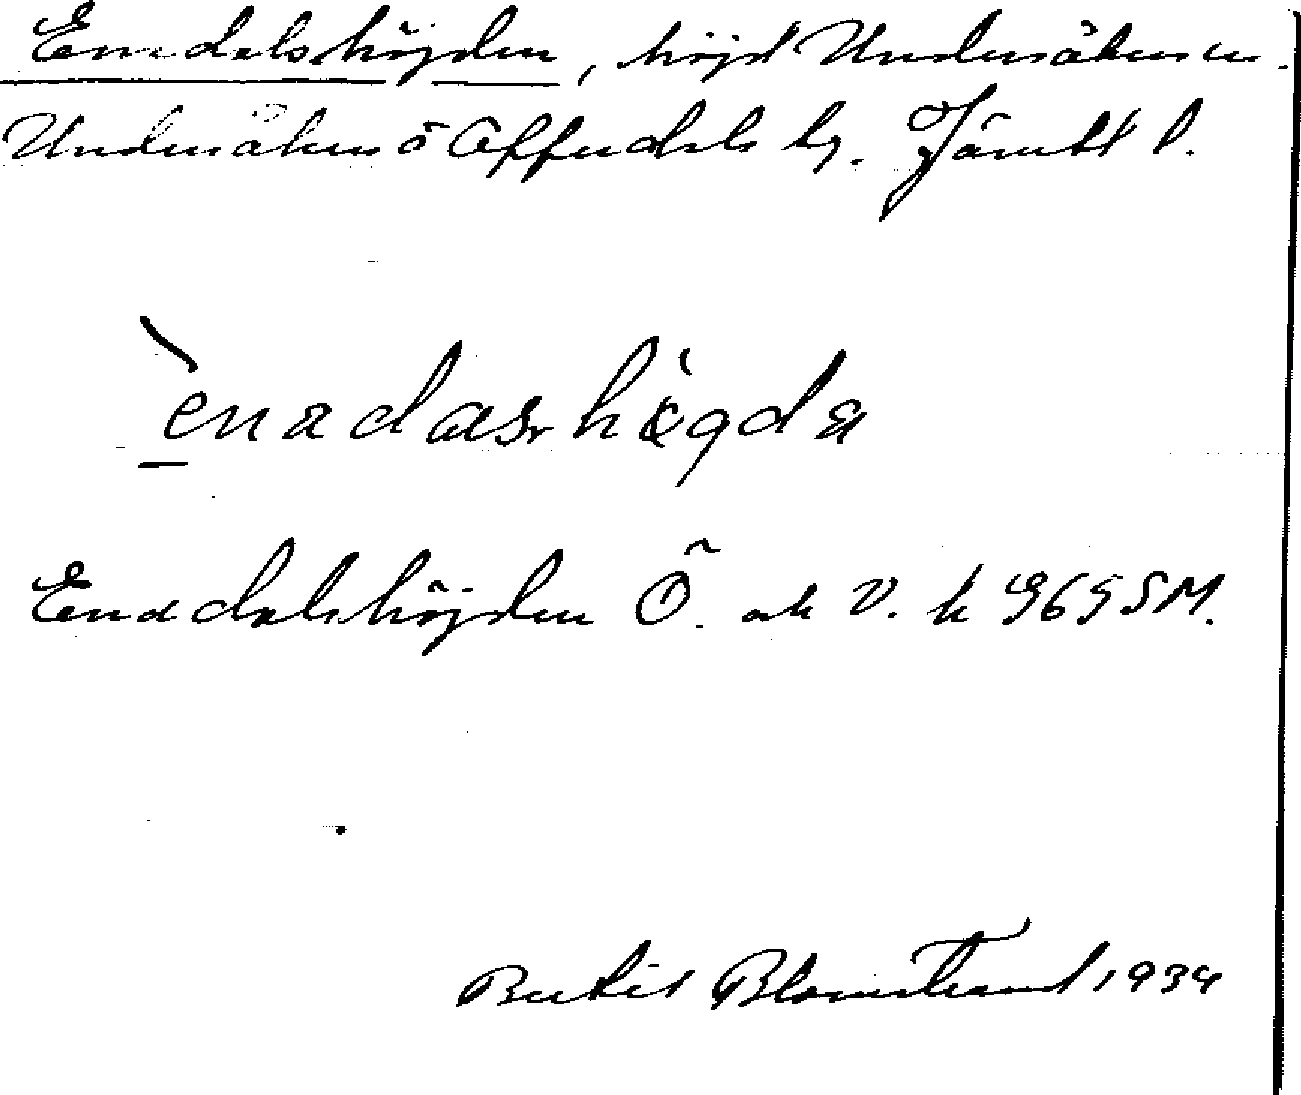 Enadalshöjden, höjd Undersåkers sn.
Undersåkers o Offerdals tg. Jämtl l.
ènadashø̀gda
Enadalshöjden Ö. ok V. k 969 SM.
Bertil Blomstrand 1934